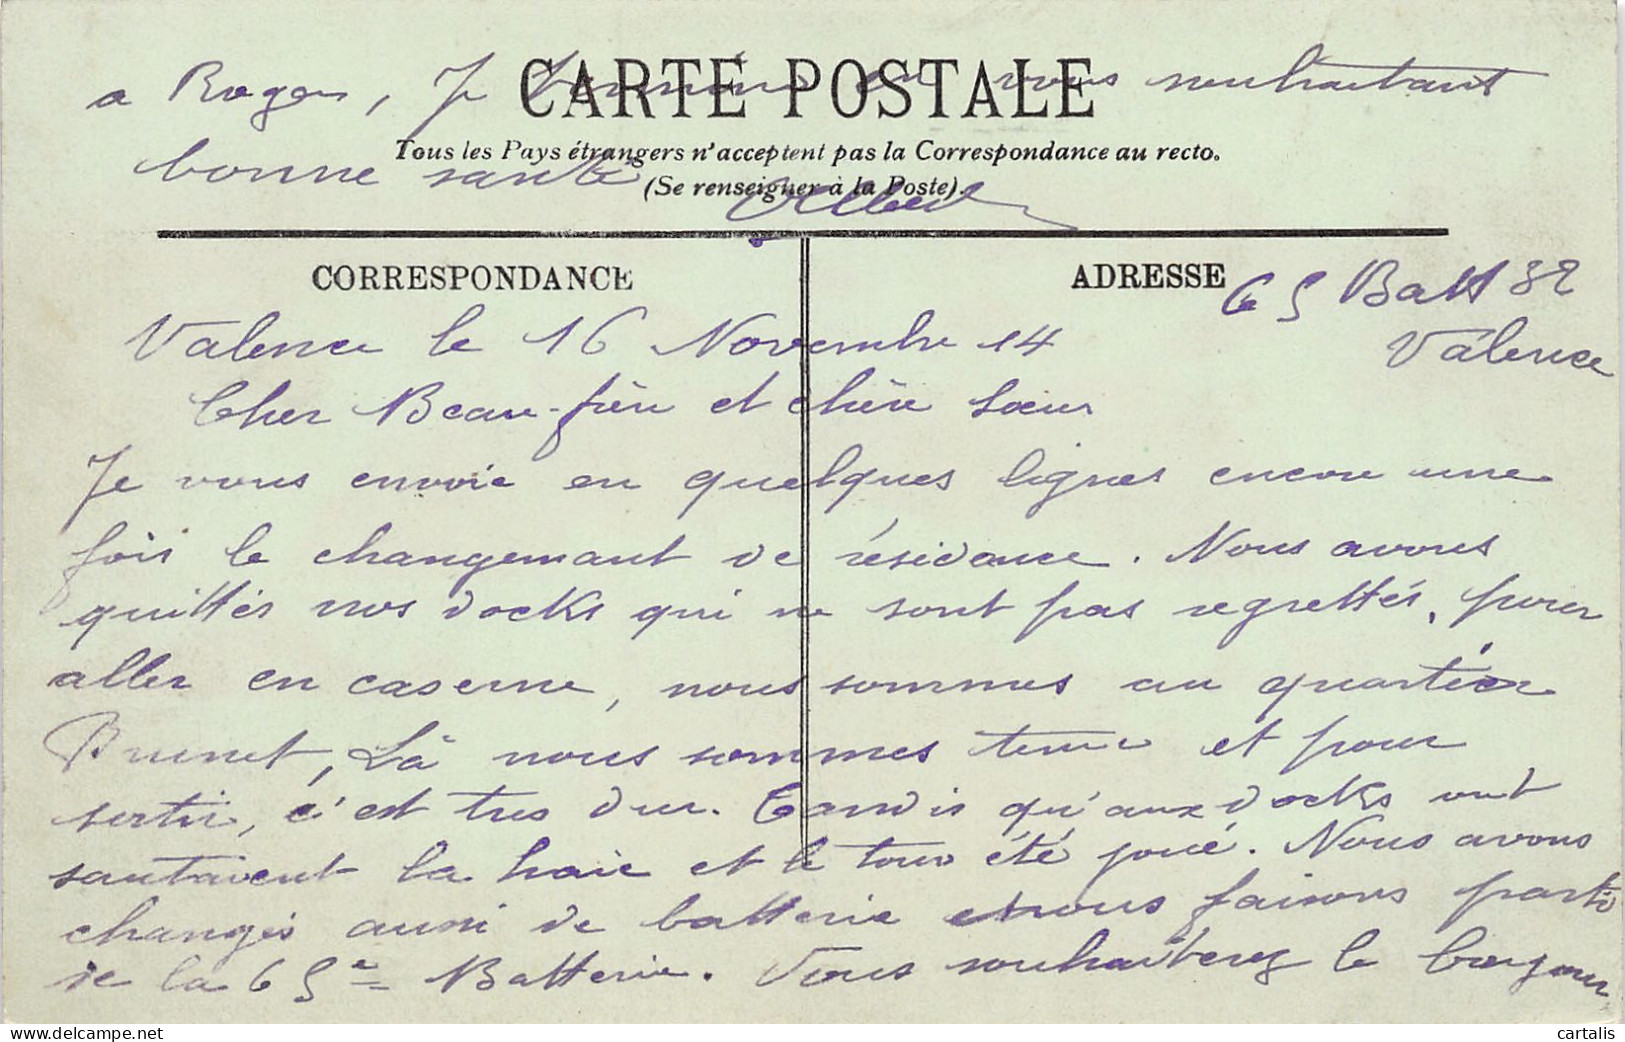 a Roger, Je termine en vous souhaitant
bonne santé
Albert
CARTE POSTALE
Tous les Pays étrangers n'acceptent pas la Correspondance au recto.
(Se renseigner à la Poste).
CORRESPONDANCE
ADRESSE
65 Batt 32
Valence
Valence le 16 Novembre 14
Cher Beau-frère et chère sœur
Je vous envoie en quelques lignes encore une
fois le changemant de résidance. Nous avons
quittés nos docks qui ne sont pas regrettés, pour
aller en caserne, nous sommes au quartier
Brunet, Là nous sommes tenu et pour
sortir, c'est tres dur. Tandis qu'aux docks ont
sautaient la haie et le tour été joué. Nous avons
changés aussi de batterie et nous faisons parti
de la 65e Batterie. Vous souhaiterez le bonjour
cartalis